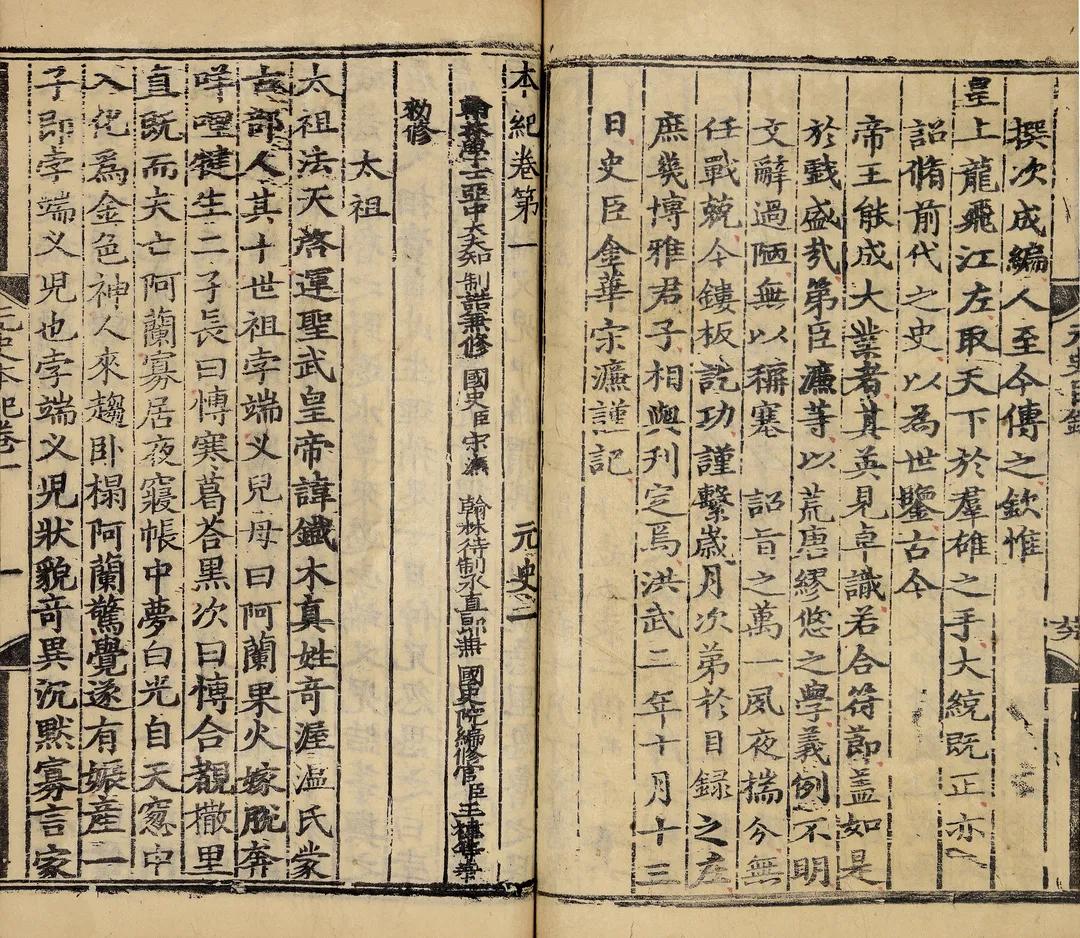 撰次成編人至今傳之欽惟
皇上龍飛江左取天下於羣雄之手大統既正亦
詔脩前代之史以為世鑒古今
帝王能成大業者其英見卓識若合符節盖如是
於戲盛㢤第臣濂等以荒唐繆悠之學義例不明
文辭過陋無以稱塞 詔旨之萬一夙夜揣分無
任戰兢今鏤板訖功謹繫歲月次第於目録之左
庶幾博雅君子相與刊定焉洪武二年十月十三
日史臣金華宋濂謹記
本紀卷第一 元史一
翰林學士亞中大夫知 制誥兼修 國史臣宋濂 翰林待制承直郎兼 國史院編修官臣王禕等奉
勑修
太祖
太祖法天啓運聖武皇帝諱鐵木真姓奇渥溫氏蒙
古部人其十世祖孛端义兒母曰阿蘭果火嫁脫奔
咩哩犍生二子長曰博寒葛荅黑次曰博合覩撒里
直既而夫亡阿蘭寡居夜寢帳中夢白光自天窻中
入化爲金色神人來趨卧榻阿蘭驚覺遂有娠產一
子即孛端义児也孛端义児狀貌奇異沉默寡言家
元史本紀卷一
一
元史目錄